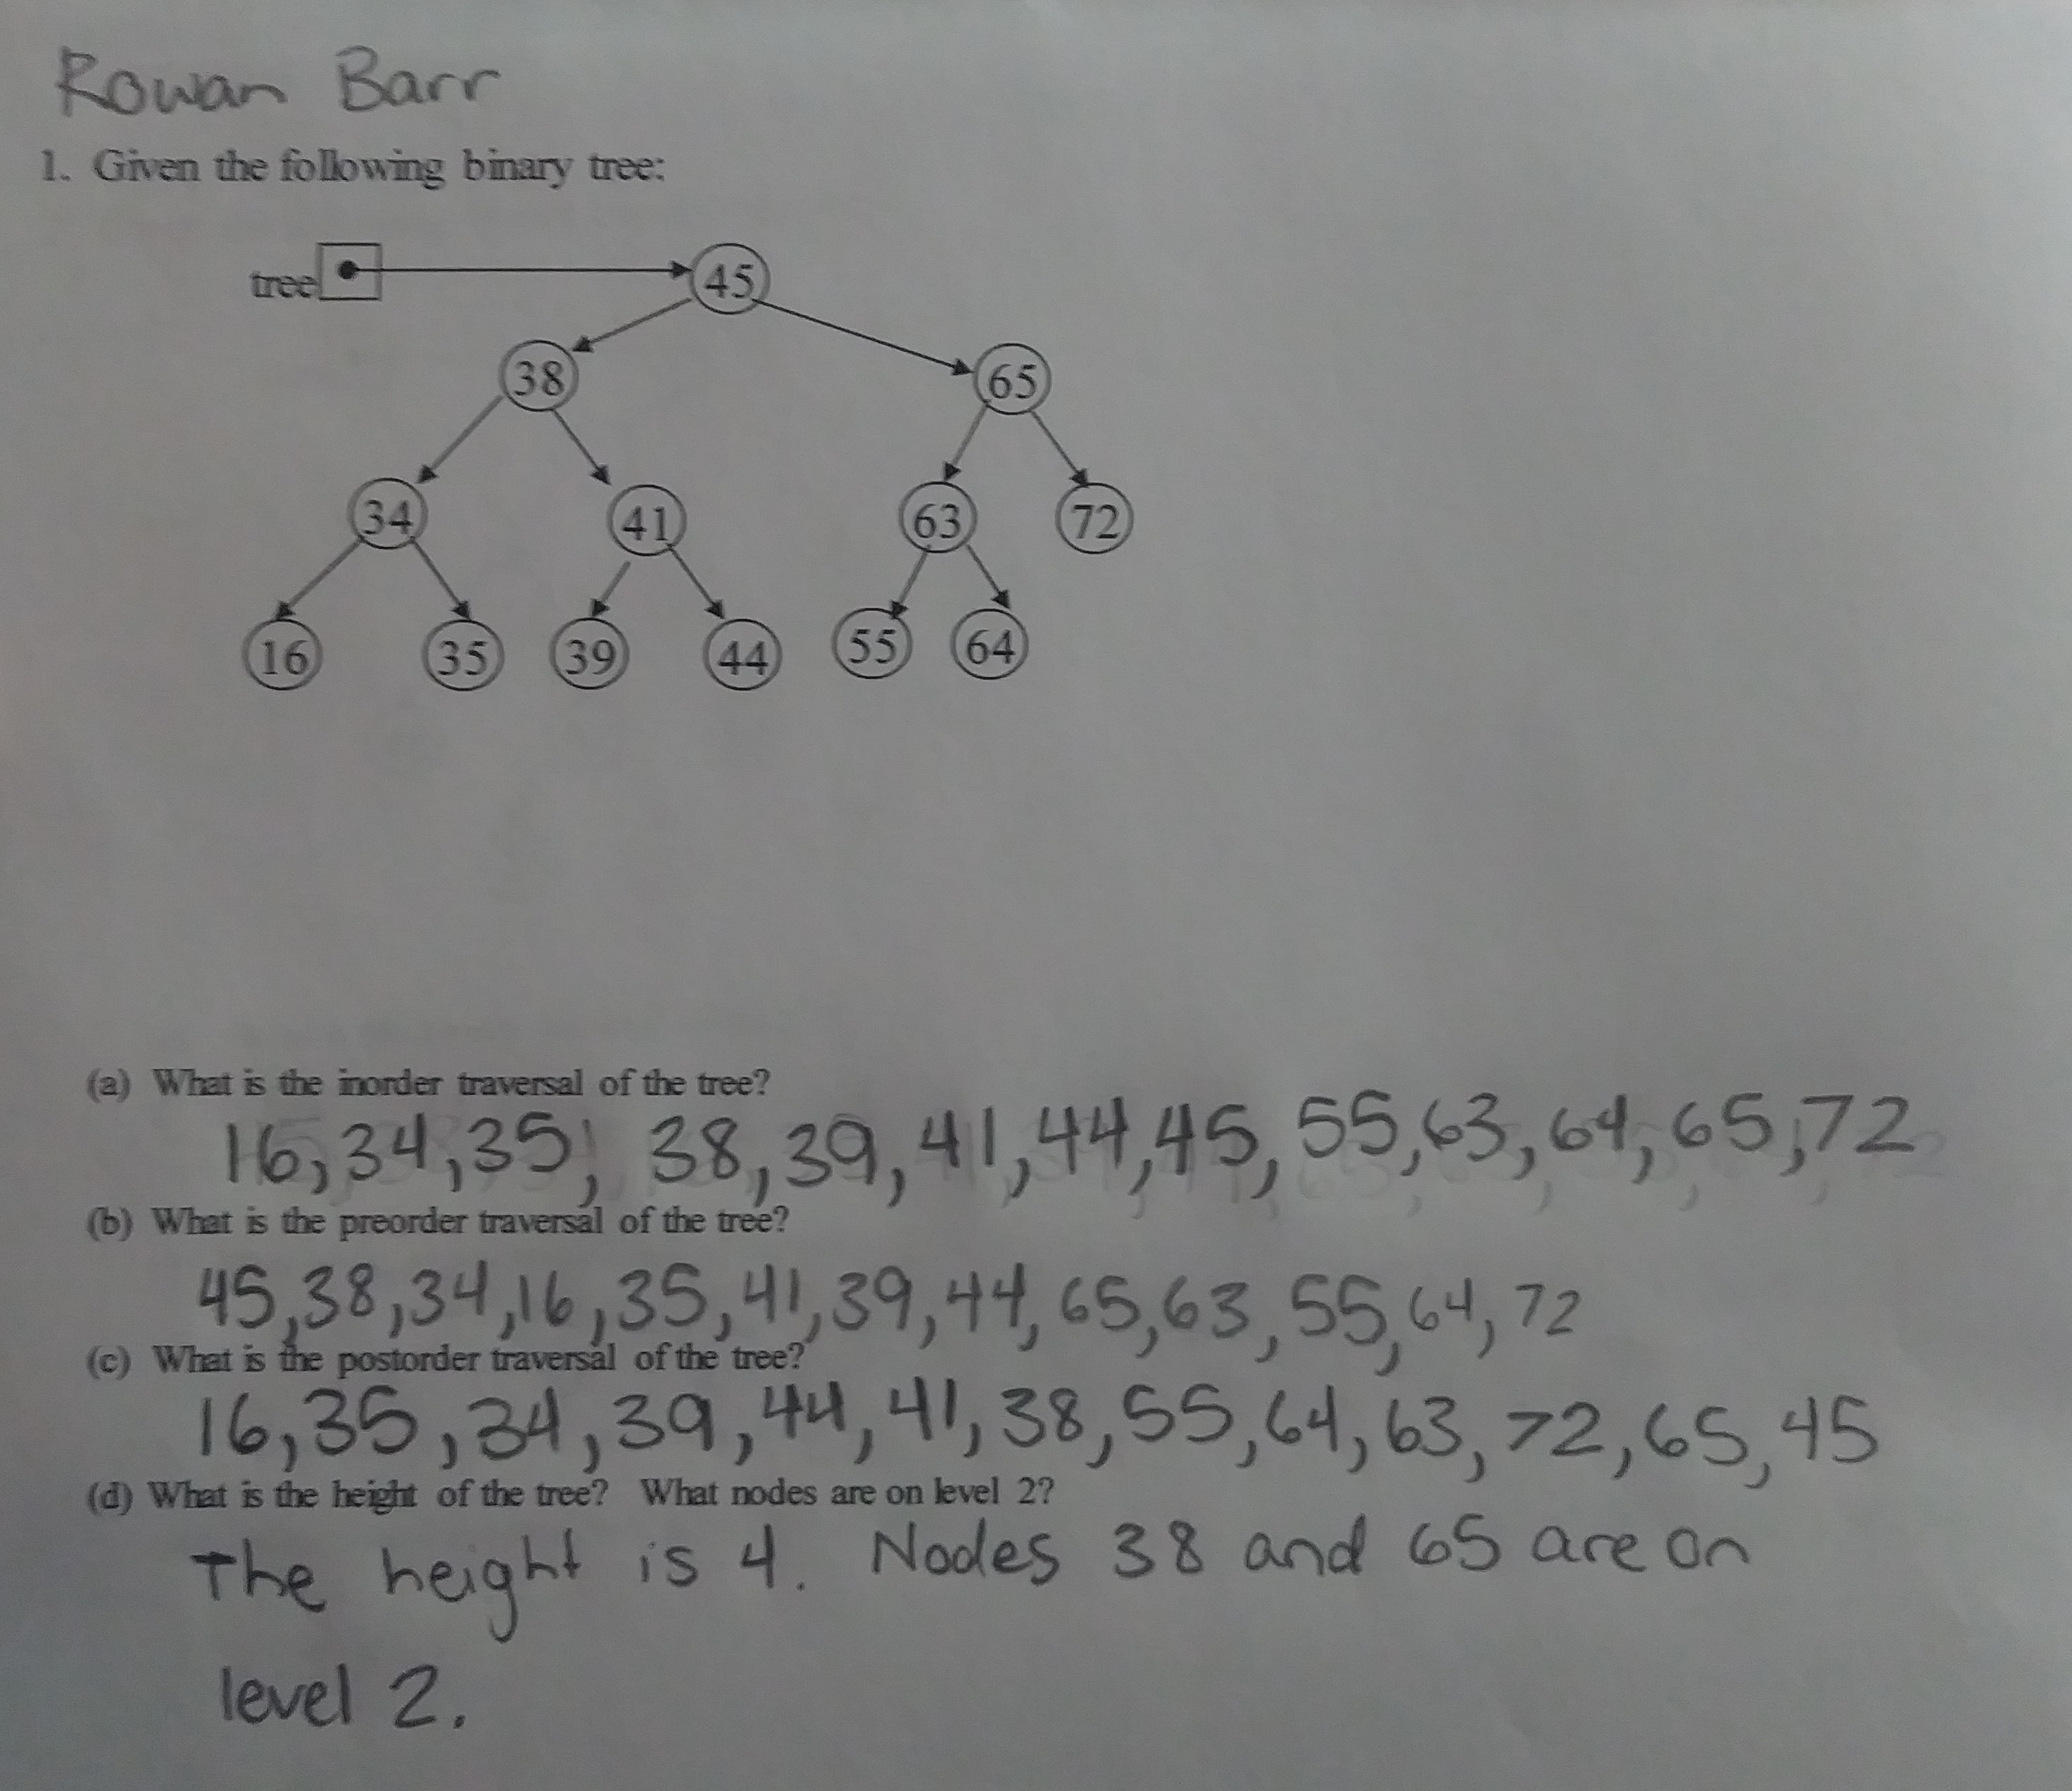 Rowan Barr
1. Given the following binary tree:
tree
45
38
65
34
41
63
72
16
35
39
44
55
64
(a) What is the inorder traversal of the tree?
16, 34, 35, 38, 39, 41, 44, 45, 55, 63, 64, 65, 72
(b) What is the preorder traversal of the tree?
45, 38, 34, 16, 35, 41, 39, 44, 65, 63, 55, 64, 72
(c) What is the postorder traversal of the tree?
16, 35, 34, 39, 44, 41, 38, 55, 64, 63, 72, 65, 45
(d) What is the height of the tree? What nodes are on level 2?
The height is 4. Nodes 38 and 65 are on
level 2.